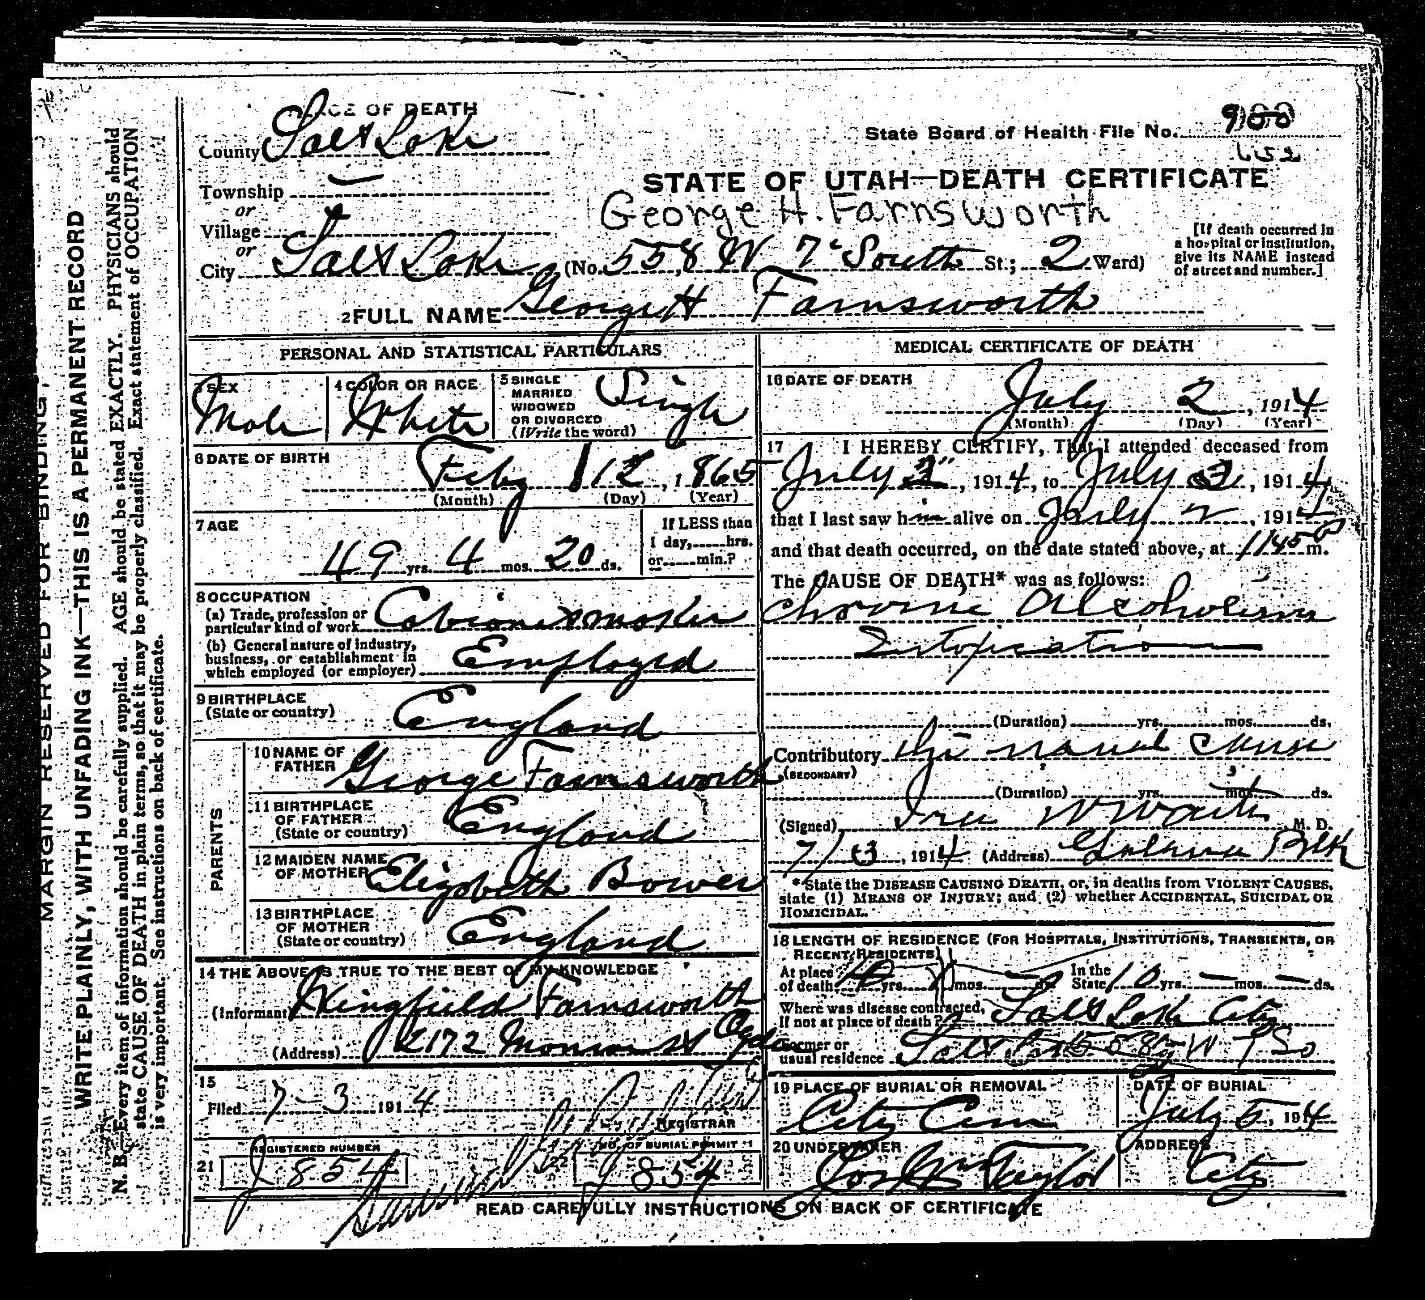 PLACE OF DEATH
County Salt Lake
State Board of Health File No. 900
652
Township —
STATE OF UTAH—DEATH CERTIFICATE
or
George H. Farnsworth
Village
or
City Salt Lake (No. 558 W 7th South St.; 2 Ward)
[If death occurred in
a hospital or institution,
give its NAME instead
of street and number.]
2 FULL NAME George H Farnsworth
PERSONAL AND STATISTICAL PARTICULARS
3 SEX
Male
4 COLOR OR RACE
White
5 SINGLE
MARRIED
WIDOWED
OR DIVORCED
(Write the word)
Single
6 DATE OF BIRTH
Feby 12, 1865
(Month) (Day) (Year)
7 AGE
49 yrs. 4 mos. 20 ds.
If LESS than
1 day,......hrs.
or......min.?
8 OCCUPATION
(a) Trade, profession or
particular kind of work Cabinet maker
(b) General nature of industry,
business, or establishment in
which employed (or employer) Employed
9 BIRTHPLACE
(State or country) England
PARENTS
10 NAME OF
FATHER George Farnsworth
11 BIRTHPLACE
OF FATHER
(State or country) England
12 MAIDEN NAME
OF MOTHER Elizabeth Bower
13 BIRTHPLACE
OF MOTHER
(State or country) England
14 THE ABOVE IS TRUE TO THE BEST OF MY KNOWLEDGE
(Informant) Kingfield Farnsworth
(Address) 2172 Monroe St Ogden
15
Filed 7-3 1914
REGISTRAR
REGISTERED NUMBER
NO. OF BURIAL PERMIT
21 J 854
22 J 854
MEDICAL CERTIFICATE OF DEATH
16 DATE OF DEATH
July 2, 1914
(Month) (Day) (Year)
17 I HEREBY CERTIFY, That I attended deceased from
July 2, 1914, to July 2, 1914
that I last saw him alive on July 2, 1914
and that death occurred, on the date stated above, at 1145 P m.
The CAUSE OF DEATH* was as follows:
Chronic Alcoholism
Intoxication
(Duration) yrs. mos. ds.
Contributory the usual cause
(SECONDARY)
(Duration) yrs. mos. ds.
(Signed) M. D.
7/3, 1914 (Address) Galena Blk
*State the DISEASE CAUSING DEATH, or, in deaths from VIOLENT CAUSES,
state (1) MEANS OF INJURY; and (2) whether ACCIDENTAL, SUICIDAL OR
HOMICIDAL.
18 LENGTH OF RESIDENCE (FOR HOSPITALS, INSTITUTIONS, TRANSIENTS, OR
RECENT RESIDENTS)
At place
of death 10 yrs. — mos. — ds. In the
State 10 yrs. — mos. — ds.
Where was disease contracted,
If not at place of death? Salt Lake City
Former or
usual residence Salt Lake 558 W 7 So
19 PLACE OF BURIAL OR REMOVAL
City Cem
DATE OF BURIAL
July 5, 1914
20 UNDERTAKER
Jos Wm Taylor
ADDRESS
City
READ CAREFULLY INSTRUCTIONS ON BACK OF CERTIFICATE
MARGIN RESERVED FOR BINDING,
WRITE PLAINLY, WITH UNFADING INK—THIS IS A PERMANENT RECORD
N. B.—Every item of information should be carefully supplied. AGE should be stated EXACTLY. PHYSICIANS should
state CAUSE OF DEATH in plain terms, so that it may be properly classified. Exact statement of OCCUPATION
is very important. See instructions on back of certificate.